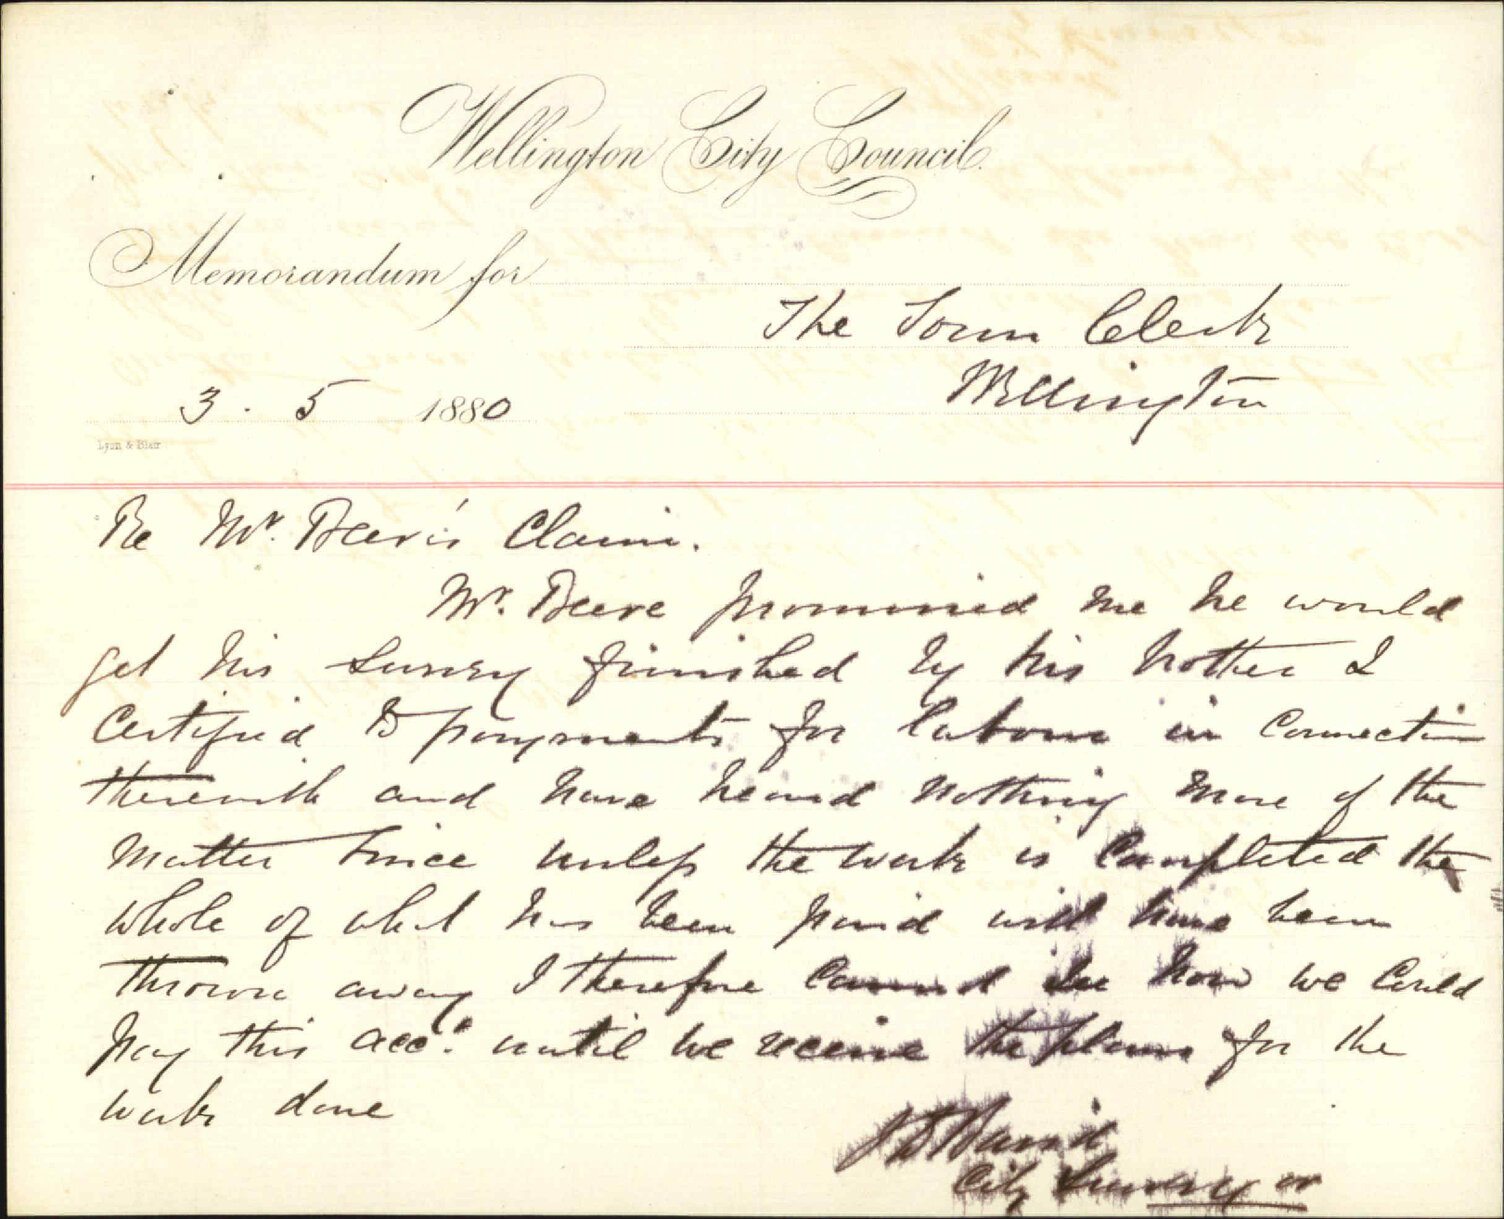 Wellington City Council.
Memorandum for
The Town Clerk
Wellington
3 . 5 1880
Lyon & Blair
Re Mr. Beere's Claim.
Mr. Beere prommised me he would
get his survey finished by his brother I
Certified to payments for labour in Connection
therewith and have heard nothing more of the
matter since unless the work is Completed the
whole of what has been paid will have been
thrown away I therefore Cannot see how we Could
pay this acct. until we receive the plans for the
work done
J D Baird
City Surveyor